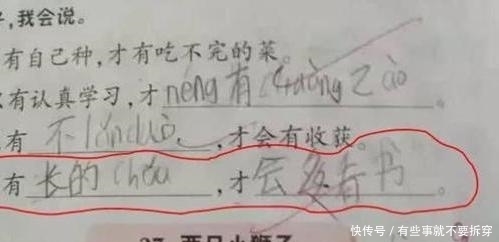 ,我会说。
有自己种,才有吃不完的菜。
有认真学习,才néng有chuàng zào。
有不lǎn duò,才会有收获。
有长的chǒu,才会多看书。
27 两只小狮子
快传号/有些事就不要拆穿